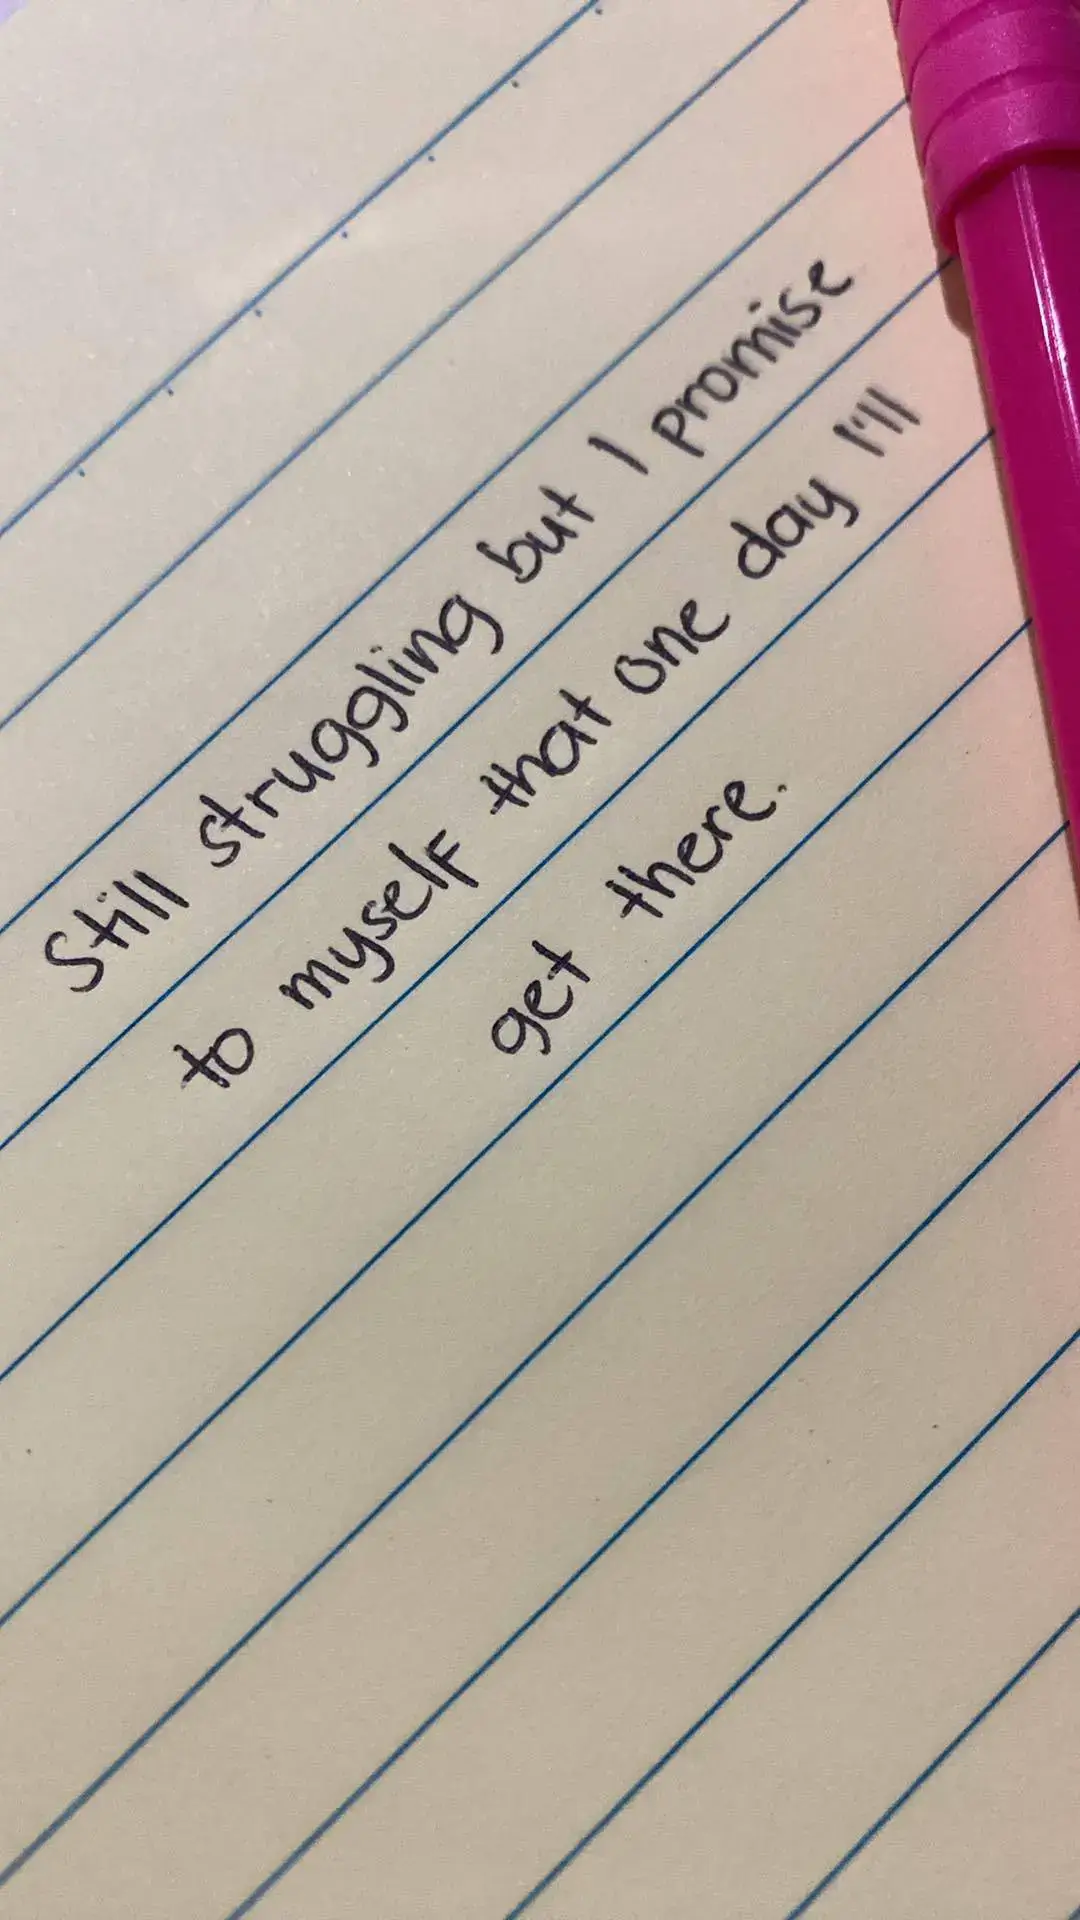 Still struggling but I promise
to myself that one day I'll
get there.